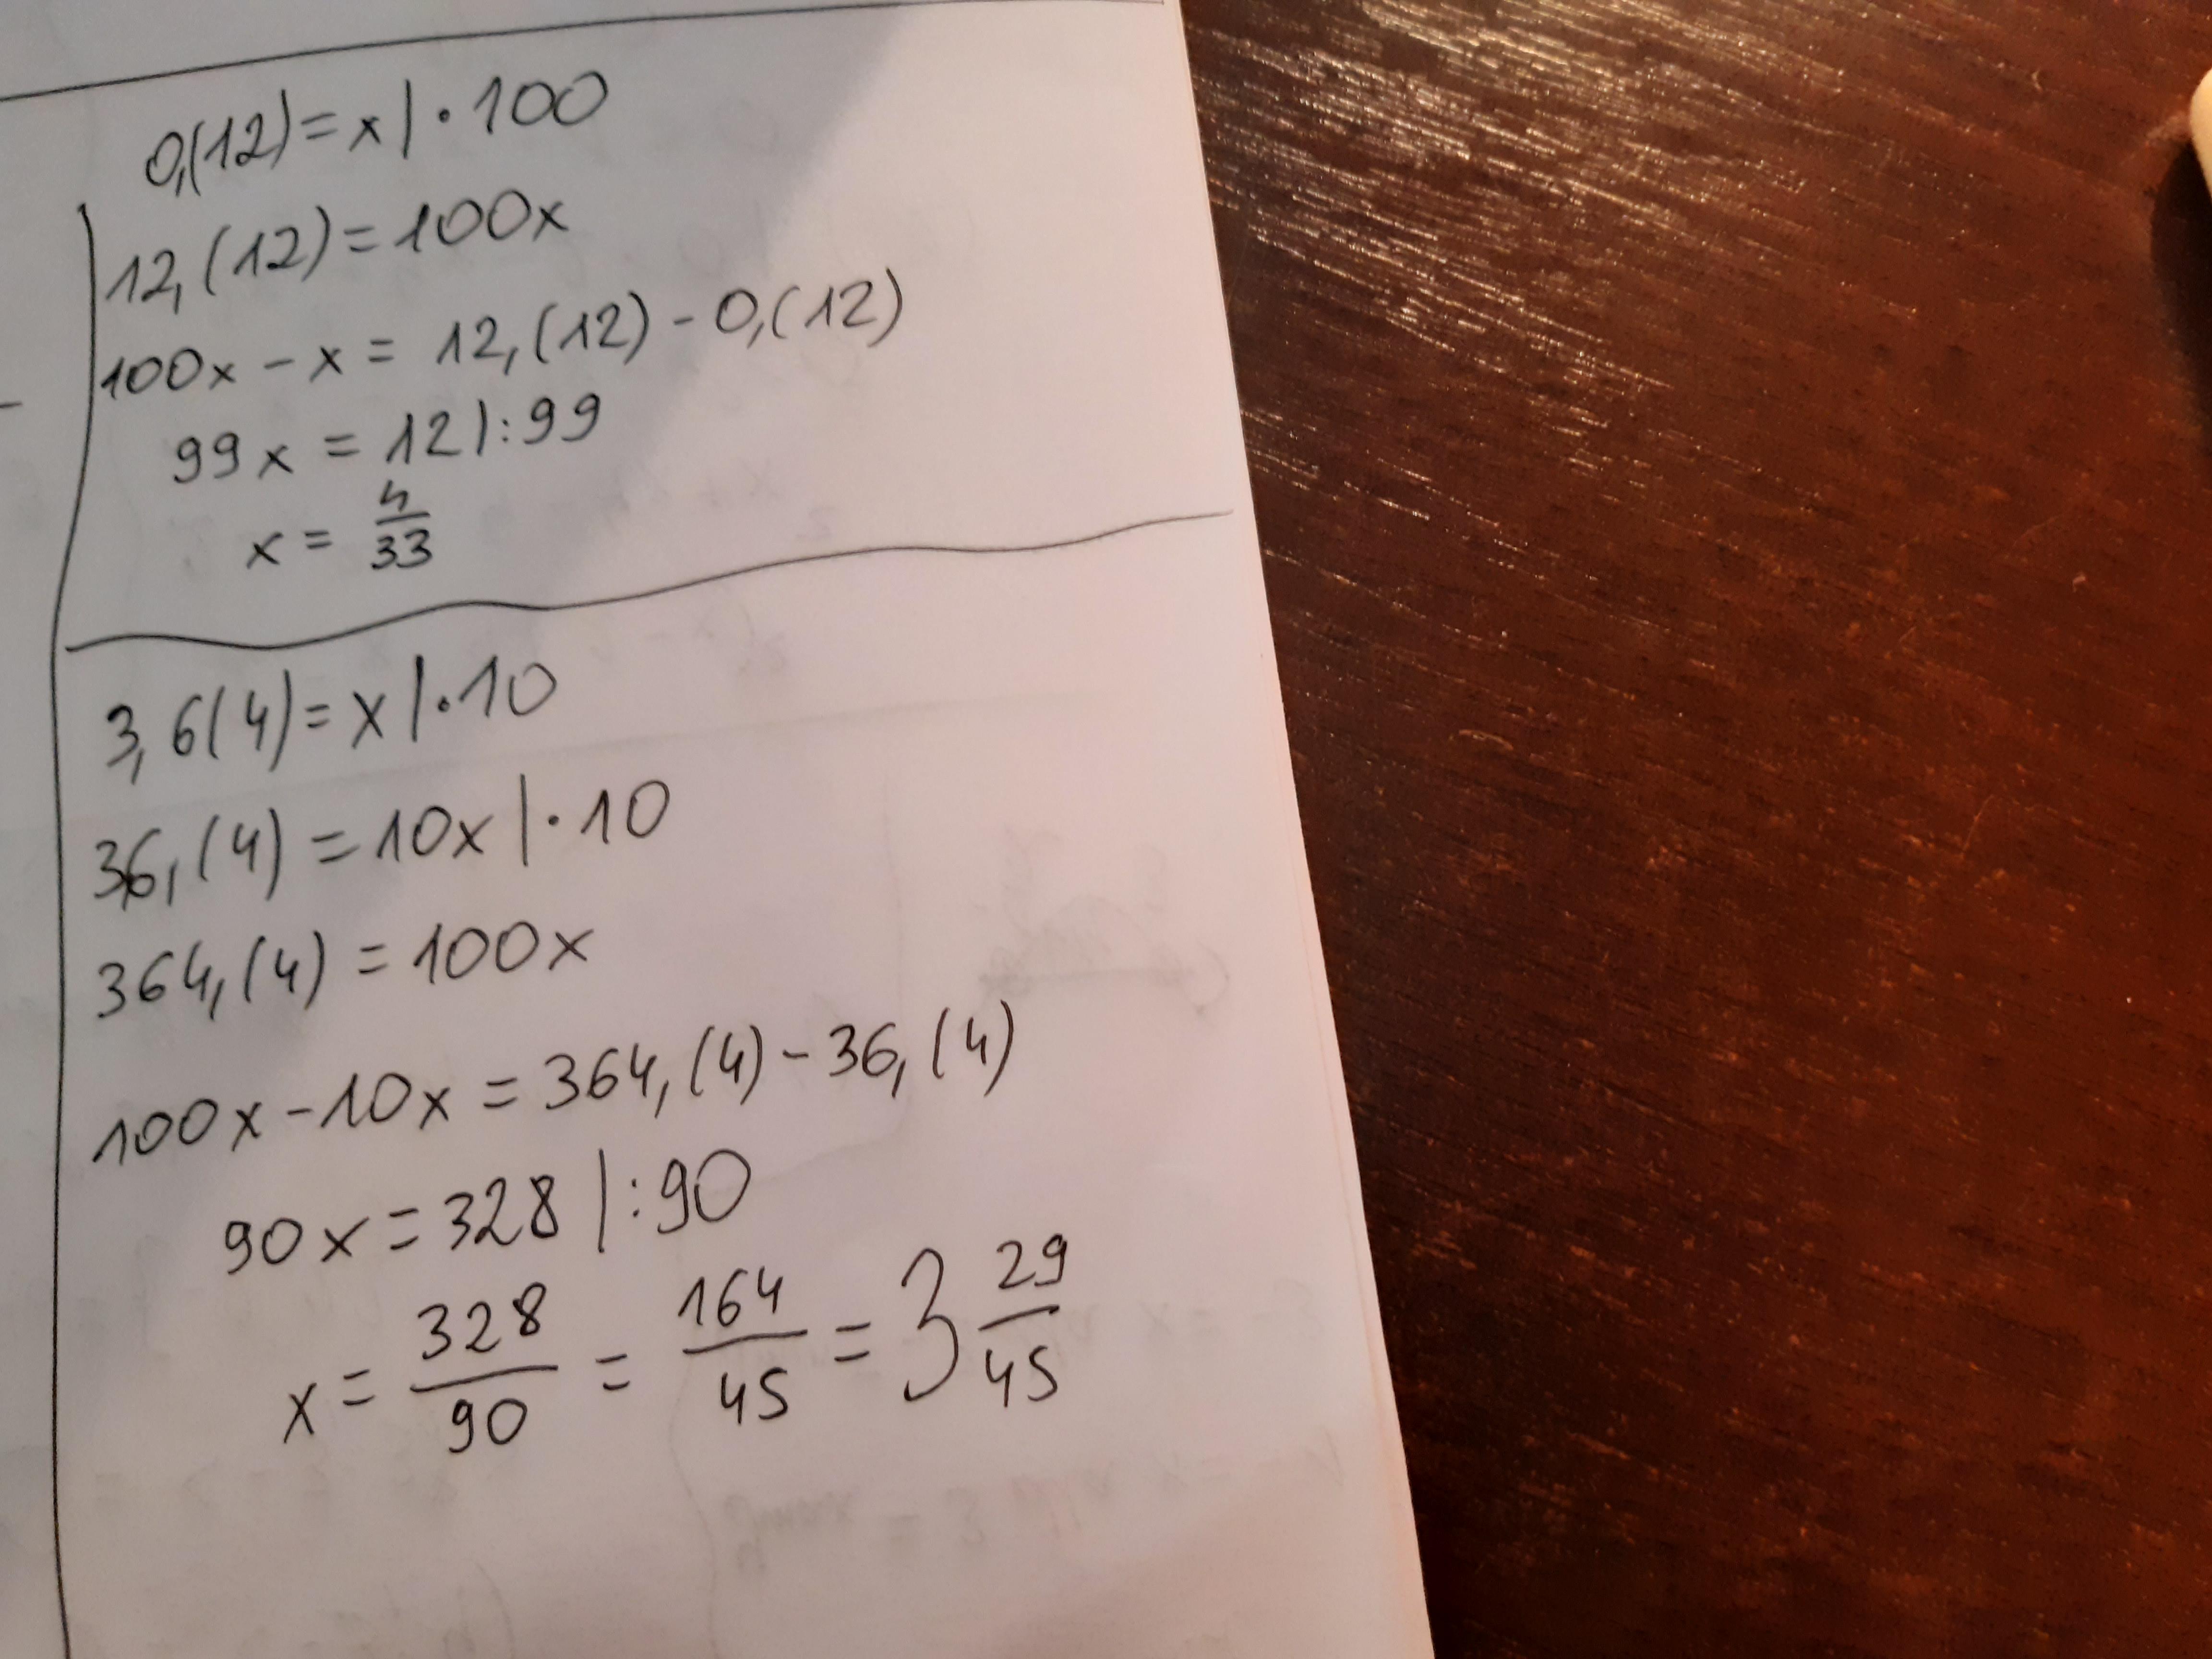 0,(12)=x|·100
12,(12)=100x
100x-x=12,(12)-0,(12)
99x=12|:99
x=4/33
3,6(4)=x|·10
36,(4)=10x|·10
364,(4)=100x
100x-10x=364,(4)-36,(4)
90x=328|:90
x=328/90=164/45=3 29/45